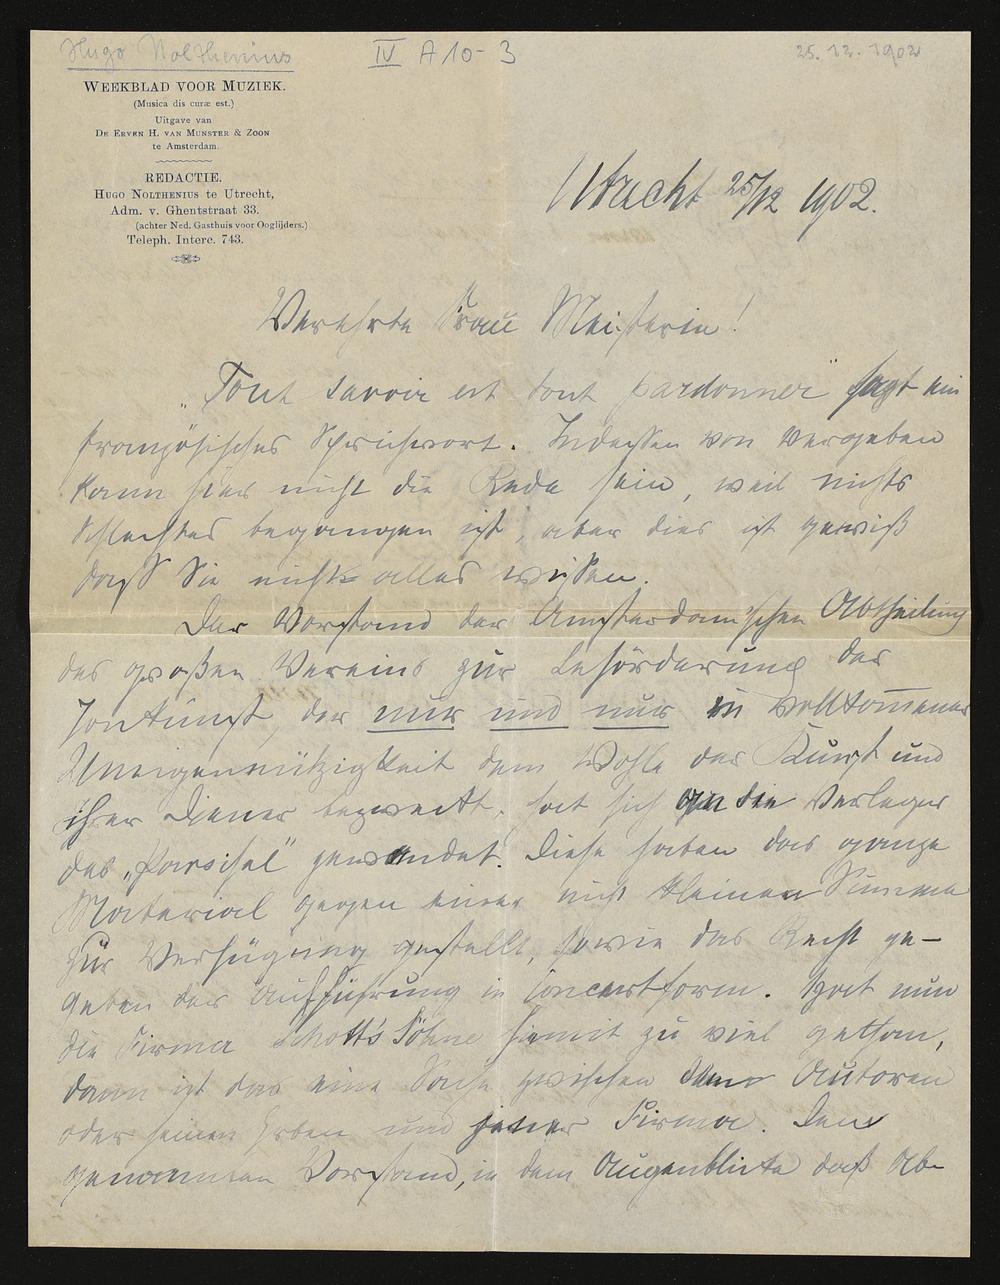 Hugo Nolthenius
IV A 10-3
25.12.1902
WEEKBLAD VOOR MUZIEK.
(Musica dis curæ est.)
Uitgave van
DE ERVEN H. VAN MUNSTER & ZOON
te Amsterdam.
REDACTIE.
HUGO NOLTHENIUS te Utrecht,
Adm. v. Ghentstraat 33.
(achter Ned. Gasthuis voor Ooglijders.)
Teleph. Interc. 743.
Utrecht 25/12 1902.
Verehrte Frau Meisterin!
„Tout savoir est tout pardonner" sagt ein
französisches Sprichwort. Indessen von vergeben
kann hier nicht die Rede sein, weil nichts
Schlechtes begangen ist, aber dies ist gewiß
daß Sie nicht alles wissen.
Der Vorstand der Amsterdam'schen Abtheilung
des großen Vereins zur Beförderung der
Tonkunst, der nur und nur in vollkom̅ener
Uneigennützigkeit dem Wohle der Kunst und
ihrer Diener bezweckt, hat sich an die Verleger
des „Parsifal" gewandet. Diese haben das ganze
Material gegen einer nicht kleinen Summe
zur Verfügung gestellt, sowie das Recht ge-
geben der Aufführung in Concertform. Hat nun
die Firma Schott's Söhne hiemit zu viel gethan,
dann ist das eine Sache zwischen dem Autoren
oder seinen Erben und jener Firma. Den
genannten Vorstand, in dem Augenblicke daß Ab-